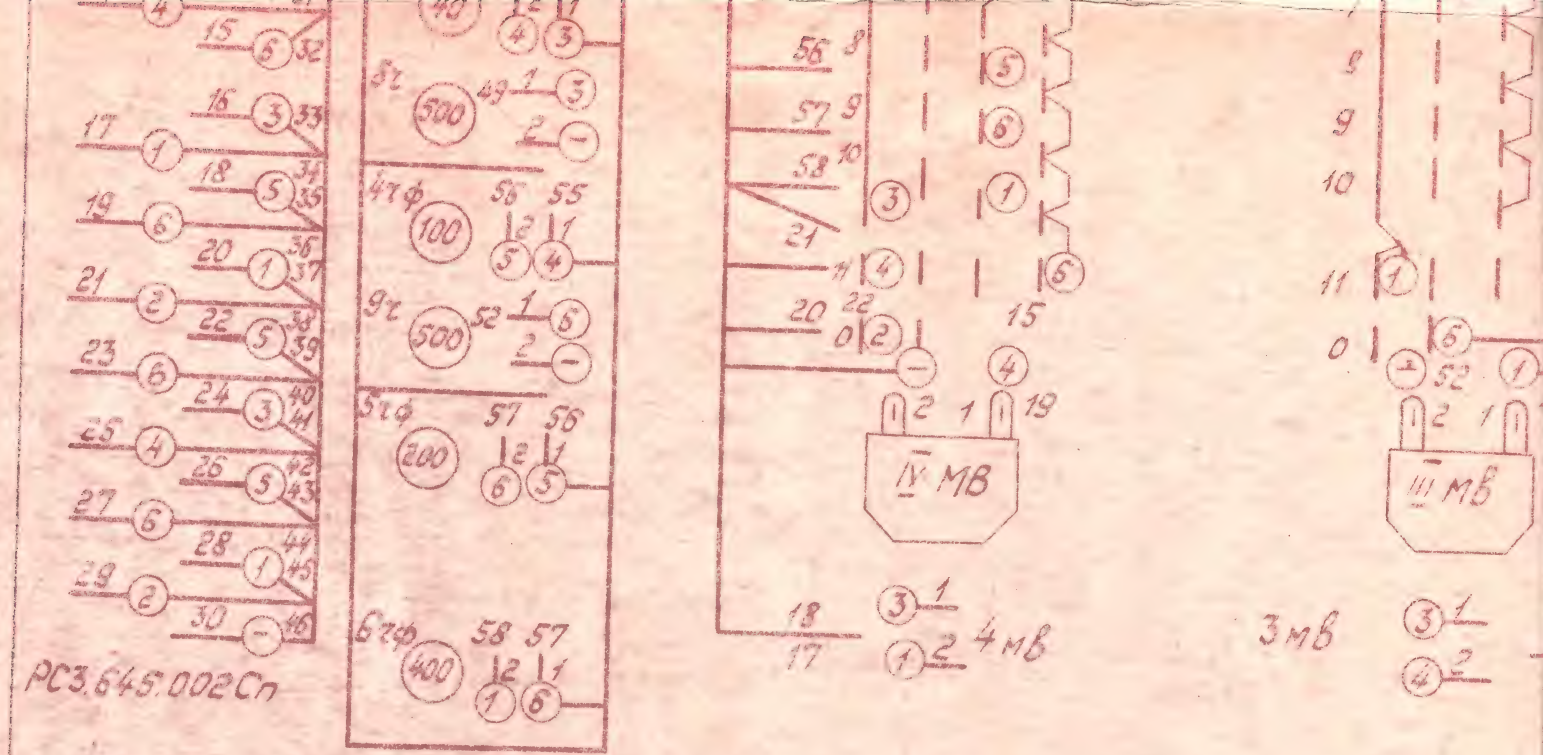 4
15 6 32
16 3 33
17 1
18 5 34
35
19 6
20 1 36
37
21 2
22 5 38
39
23 6
24 3 40
41
25 4
26 5 42
43
27 6
28 1 44
45
29 2
30 – 46
РС3.645.002Сп
40 2 1
4 3
8г 500 49 1 3
2 –
4гф 100 56 55
2 1
5 4
9г 500 52 1 6
2 –
5гф 200 57 56
2 1
6 5
6гф 400 58 57
2 1
1 6
56 8 5
57 9 6
58 10 3 1
21
11 4 6
20 22 15
0 2
– 4
2 1 19
IV МВ
18
17
3 1
1 2 4 мв
8
9
10
11 1
0 6
– 52 1
2 1
III МВ
3 мв
3 1
4 2